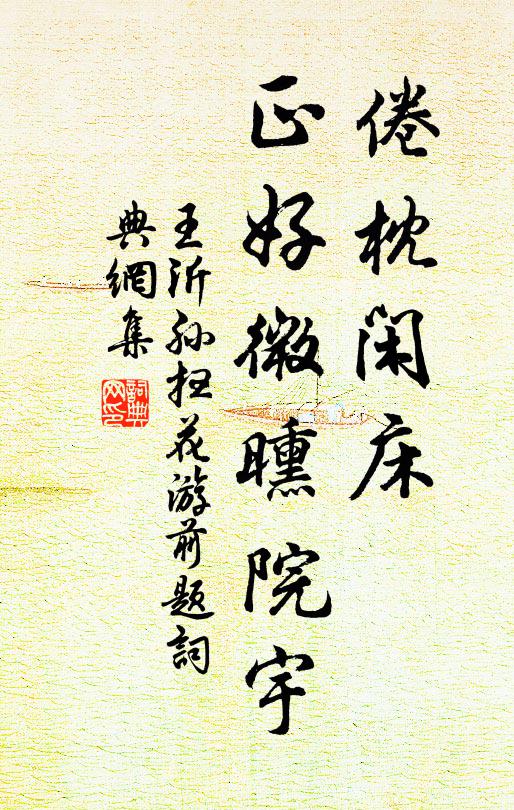 倦枕闲床
正好微曛院宇
王沂孙扫花游前题詞
典網集
詞典网印